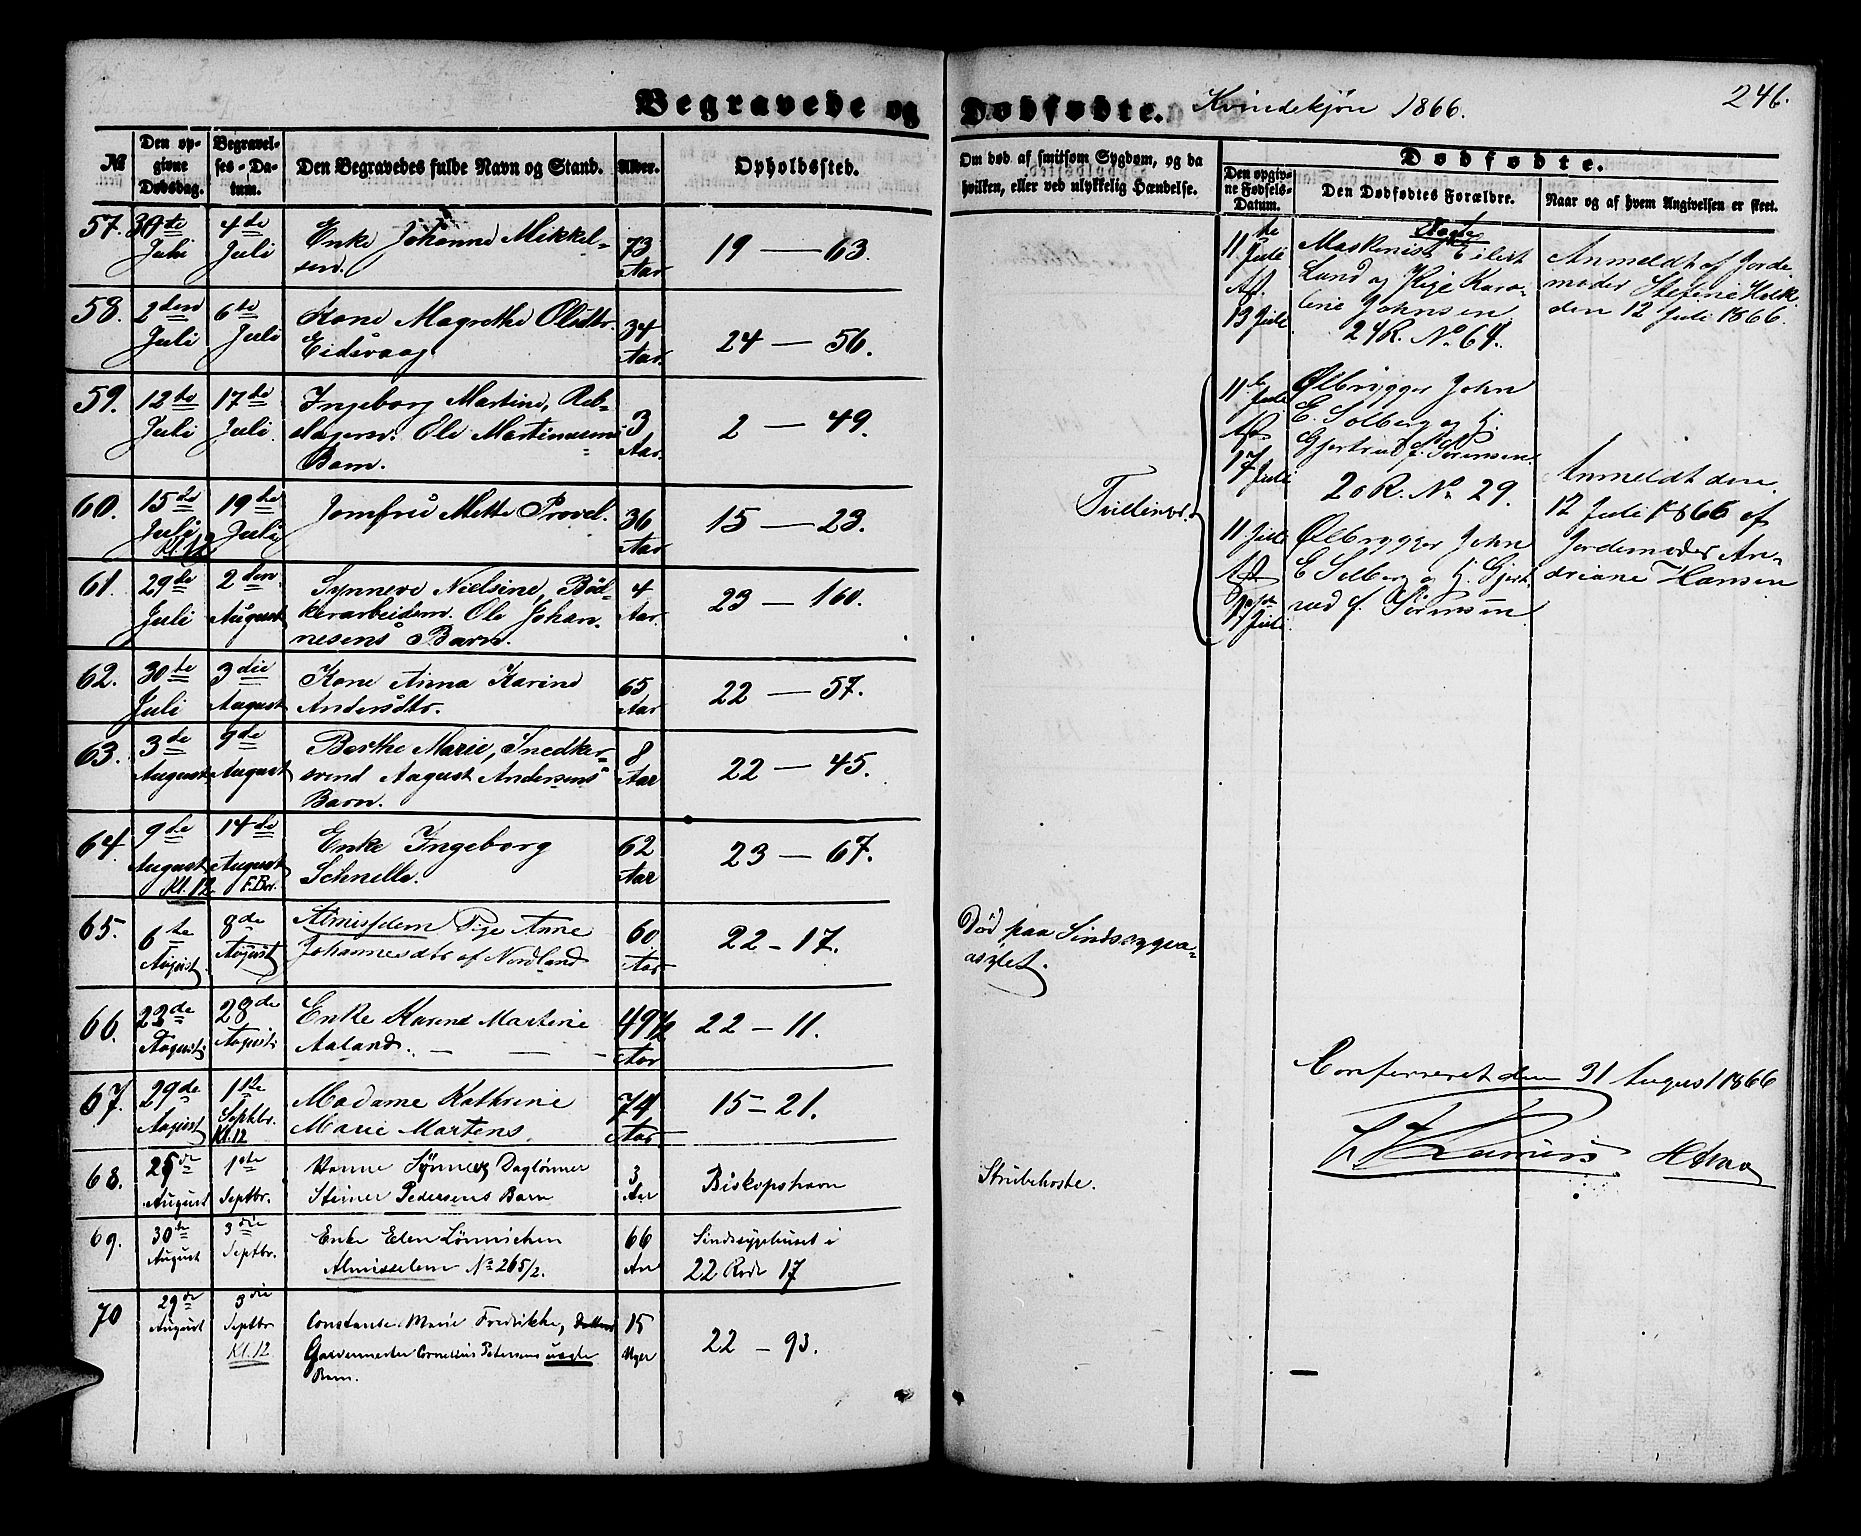 Begravede og Dødfødte. Kvindekjøn 1866. 246.
№ | Den opgivne Dødsdag. | Begravelses-Datum. | Den Begravedes fulde Navn og Stand. | Alder. | Opholdssted. | Om død af smitsom Sygdom, og da hvilken, eller ved ulykkelig Hændelse.
Dødfødte.
Den opgivne Fødsels-Datum. | Den Dødfødtes Forældre. | Naar og af hvem Angivelsen er skeet.
57. 30te Juli | 4de Juli | Enke Johanne Mikkel-
sen. | 73 Aar | 19 — 63.
58. 2den Juli | 6te Juli | Kone Magrethe Olsdtr.
Eidsvaag | 34 Aar. | 24 — 56.
59. 12te Juli | 17de Juli. | Ingeborg Martine, Reb-
slagersv. Ole Martinusens
Barn. | 3 Aar. | 2 — 49.
60. 15de Juli Kl. 12 | 19de Juli | Jomfru Mette Provel. | 36 Aar. | 15 — 23.
61. 29de Juli | 2den August | Synneve Nielsine, Bød-
kerarbeidsm. Ole Johan-
nesens Barn. | 4 Aar. | 23 — 160.
62. 30te Juli | 3die August | Kone Anna Karine
Andersdtr. | 65 Aar | 22 — 57.
63. 3de August | 9de August | Berthe Marie, Snedker-
svend August Andersens
Barn. | 8 Aar | 22 — 45.
64. 9de August Kl. 12 | 14de August F.Br. | Enke Ingeborg
Schnelle. | 62 Aar | 23 — 67.
65. 6te August. | 8de August | Almisselem Pige Anne
Johannesdtr af Nordland | 60 Aar | 22 - 17. | Død paa Sindssygea-
sylet.
66. 23de August. | 28de August. | Enke Karine Martine
Aaland. | 49 1/2 Aar | 22 — 11.
67. 29de August | 1ste Septbr. Kl. 12 | Madame Kathrine
Marie Martens. | 74 Aar. | 15 - 21.
68. 25de August | 1ste Septbr. | Hanne Synneve Daglønner
Steiner Pedersens Barn | 3 Aar | Biskopshavn | Strubehoste.
69. 30te August | 3die Septbr. | Enke Elen Lønnichen
Almisselem № 265/2. | 66 Aar | Sindssygehuset i
22 Rode 17
70 29de August | 3die Septbr Kl. 12 | Constance Marie Fredrikke,
Garvermester Cornelius Petersens uægte
Barn. | 15 Uger | 22 — 93.
Ægte
11te Juli
13 Juli | Maskinist Eilert
Lund og Pige Karo-
line Johnsen
24 R. No 64. | Anmeldt af Jorde-
moder Stefine Holk
den 12 Juli 1866.
Tvillinger.
11 Juli
17 Juli | Ølbrygger John
E. Solberg og H.
Gjertrud f. Sørensen.
20 R. No 29.
11 Juli
Juli | Ølbrygger John
E Solberg og H. Gjert-
rud f. Sørensen. | Anmeldt den
12 Juli 1866 af
Jordemoder An-
driane Hansen
Confereret den 31 August 1866